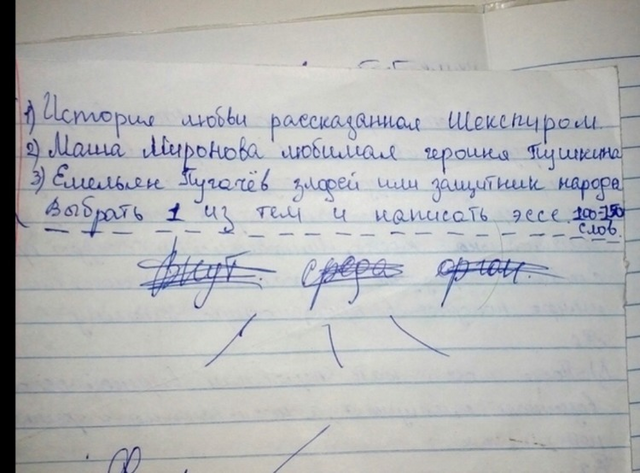 1) История любви рассказанная Шекспиром
2) Маша Миронова любимая героиня Пушкина
3) Емельян Пугачёв злодей или защитник народа
Выбрать 1 из тем и написать эссе 100-150
слов
внут. среда орган.